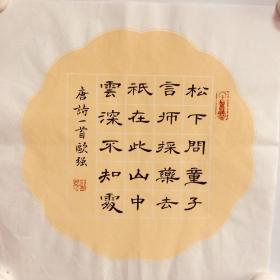 松下問童子
言師採藥去
祇在此山中
雲深不知處
唐詩一首歐强